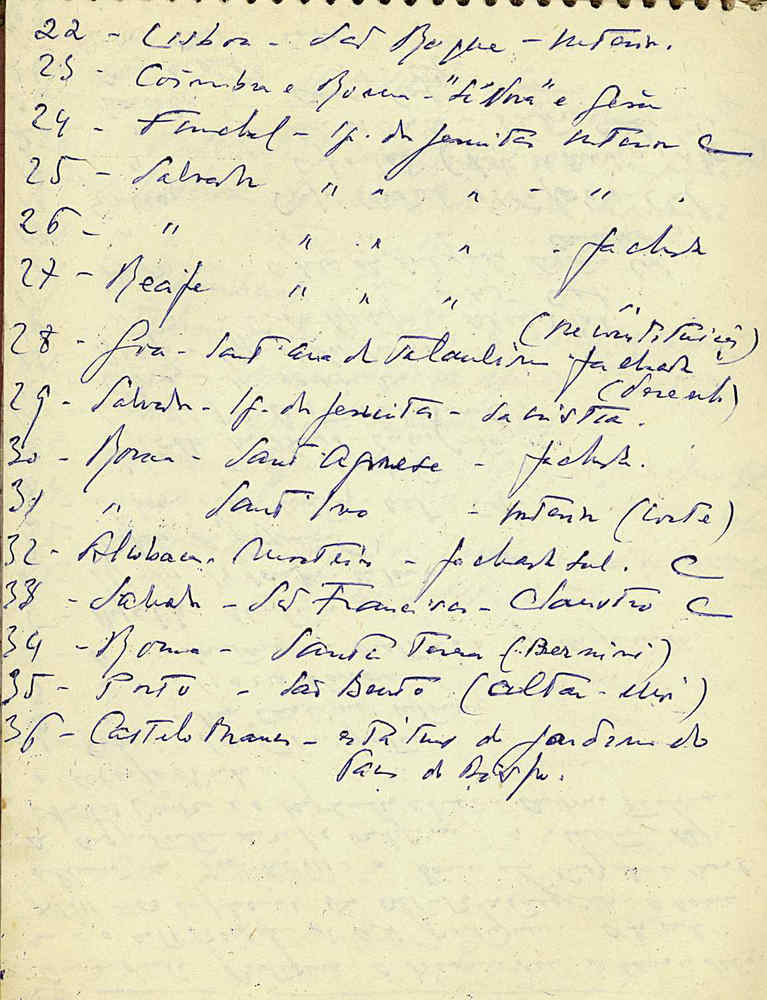 22 - Lisboa - São Roque - Interior.
23 - Coimbra e Roma - "Sé Nova" e Gesù
24 - Funchal - Ig. dos Jesuitas Interior C
25 - Salvador " " " - " .
26 - " " " " - fachada
27 - Recife " " "
(reconstituição)
28 - Goa - Sant'Ana de Talaulim fachada
(desenho)
29 - Salvador - Ig. dos Jesuitas - Sacristia.
30 - Roma - Sant'Agnese - fachada.
31 " Sant'Ivo - Interior (corte)
32 - Alcobaça - Mosteiro - fachada sul. C
33 - Salvador - São Francisco - Claustro C
34 - Roma - Santa Teresa (Bernini)
35 - Porto - São Bento (altar-mór)
36 - Castelo Branco - estátuas do jardim do
Paço do Bispo.